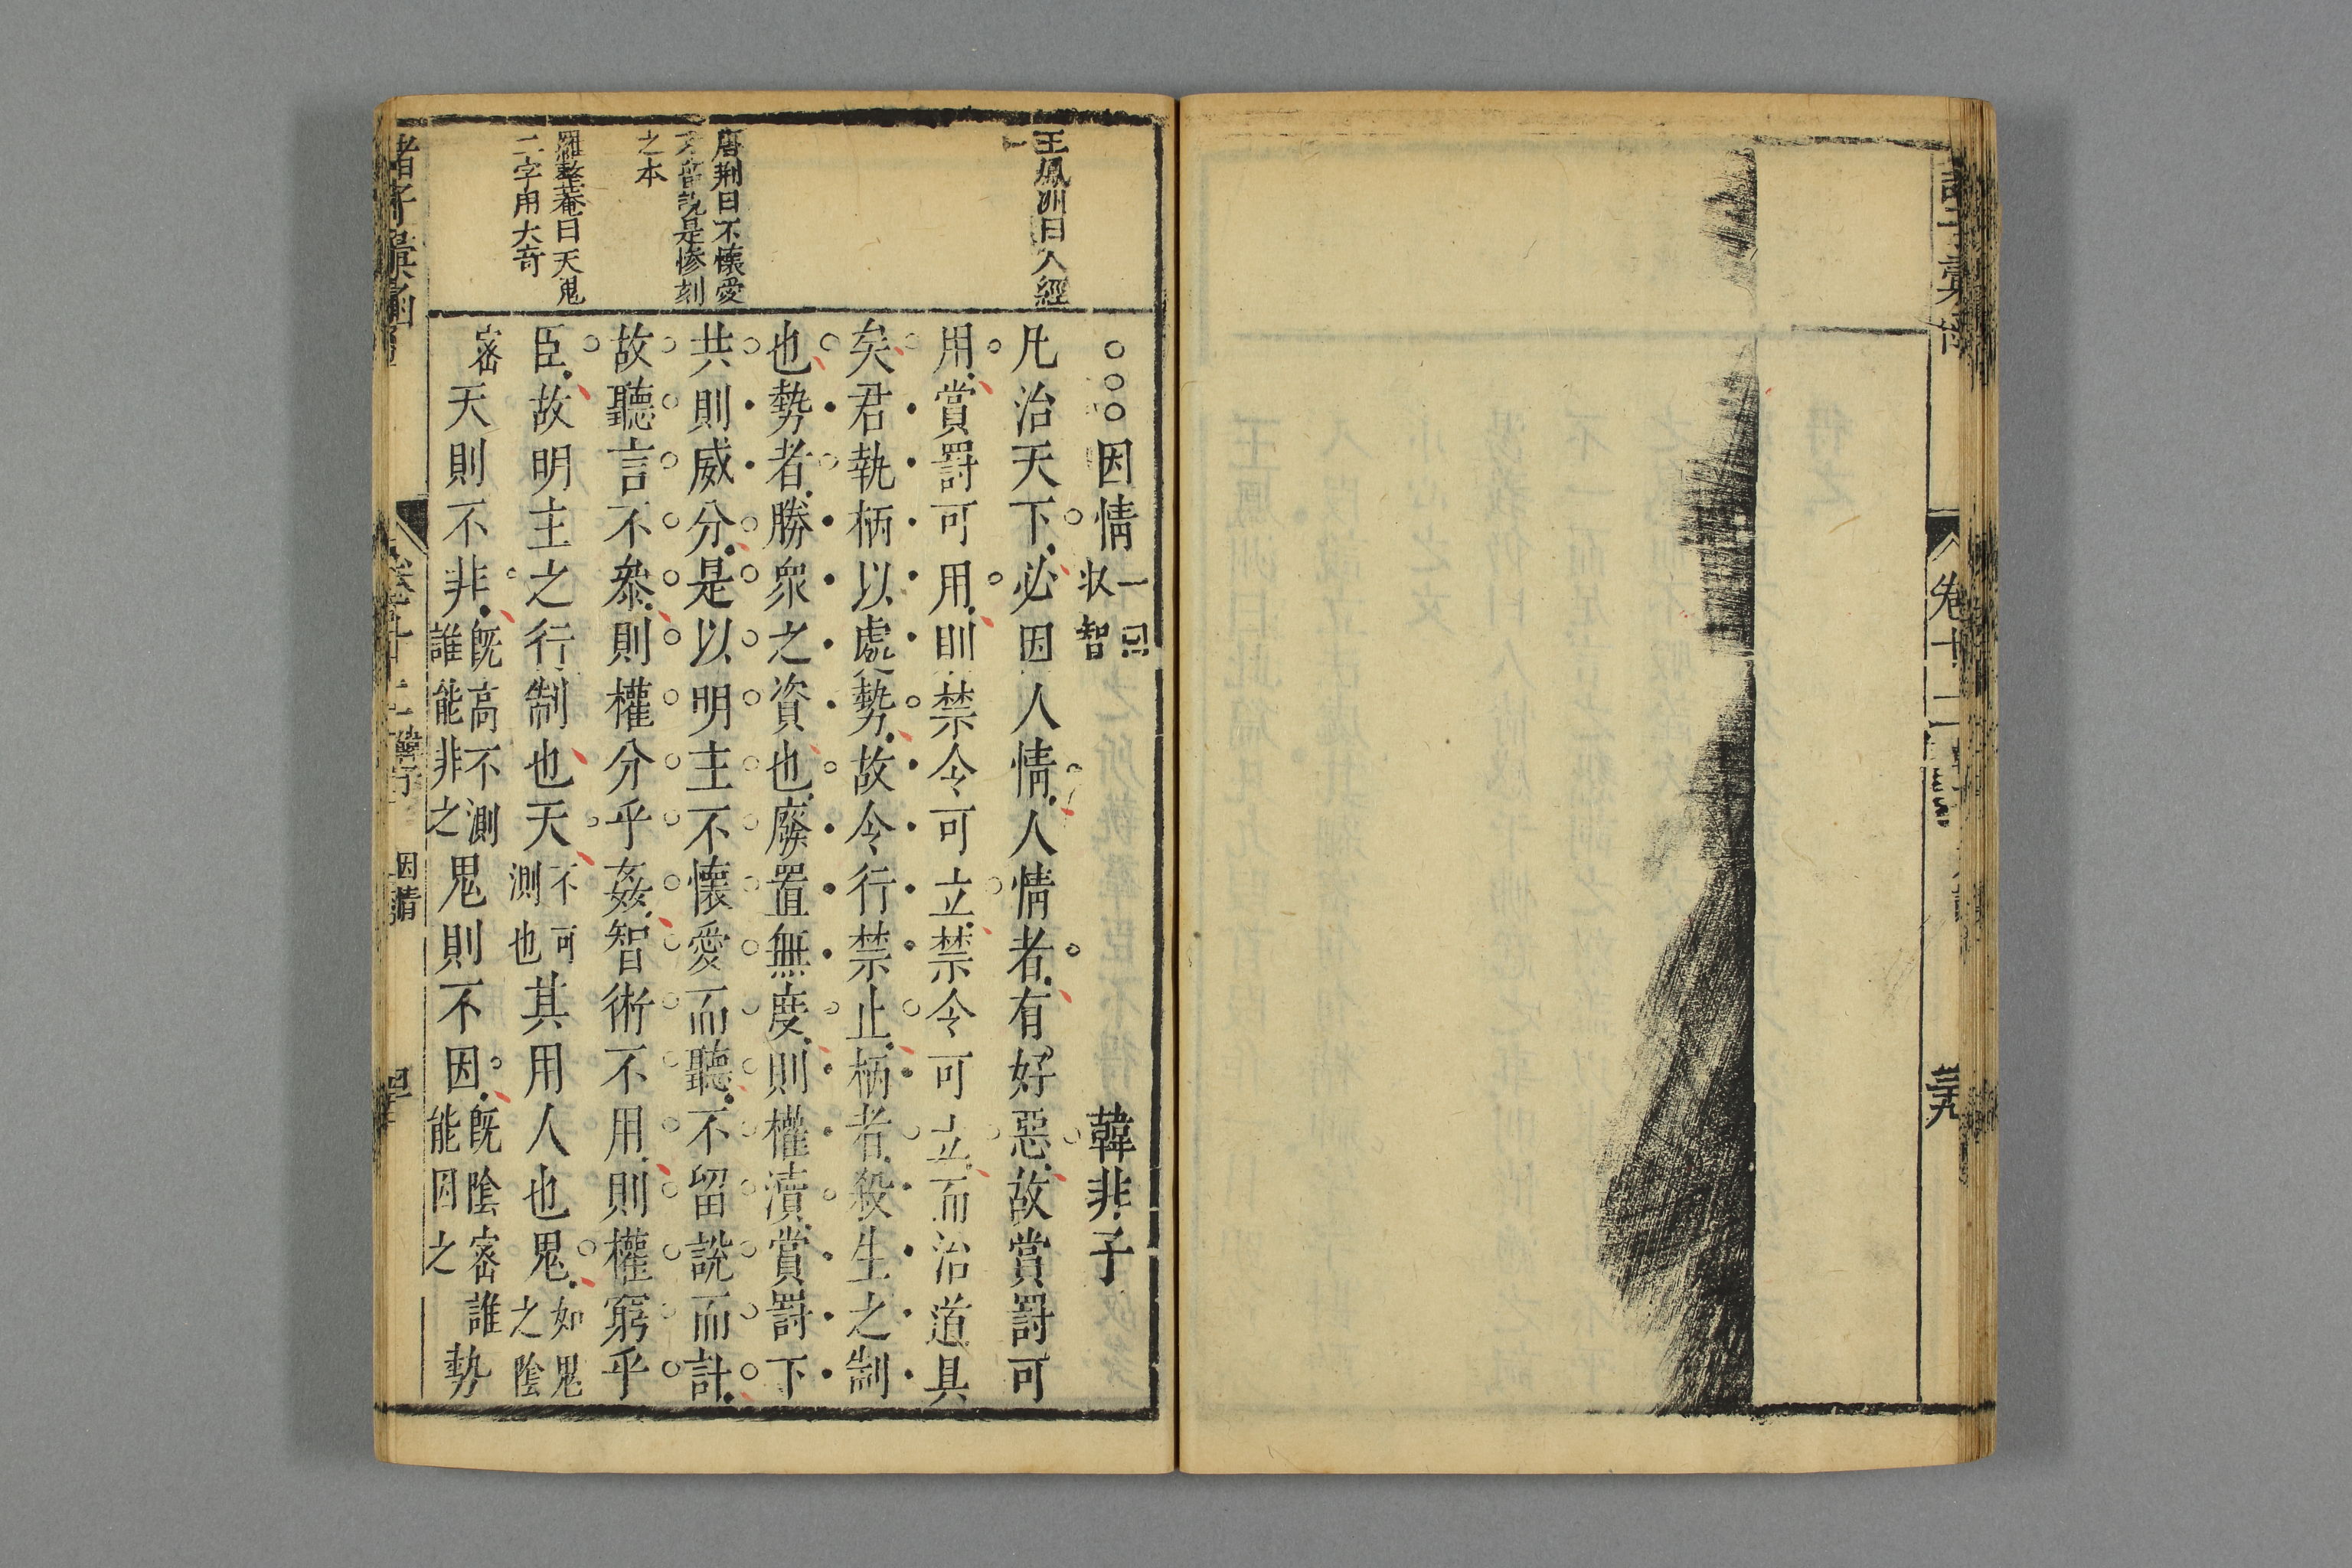 卷十二
三十九
王鳳洲曰八經
一
唐荆曰不懷愛
不留說是慘刻
之本
羅整菴曰天鬼
二字用大奇
因情
一曰
収智
韓非子
凡治天下必因人情人情者有好惡故賞罰可
用賞罰可用則禁令可立禁令可立而治道具
矣君執柄以處勢故令行禁止柄者殺生之制
也勢者勝衆之資也廢置無度則權瀆賞罰下
共則威分是以明主不懷愛而聽不留說而計
故聽言不叅則權分乎姦智術不用則權窮乎
臣故明主之行制也天不可測也其用人也鬼如鬼之陰
密天則不非旣高不測誰能非之鬼則不因旣陰密誰能因之勢
諸子彙函
卷之十二
韓子
因情